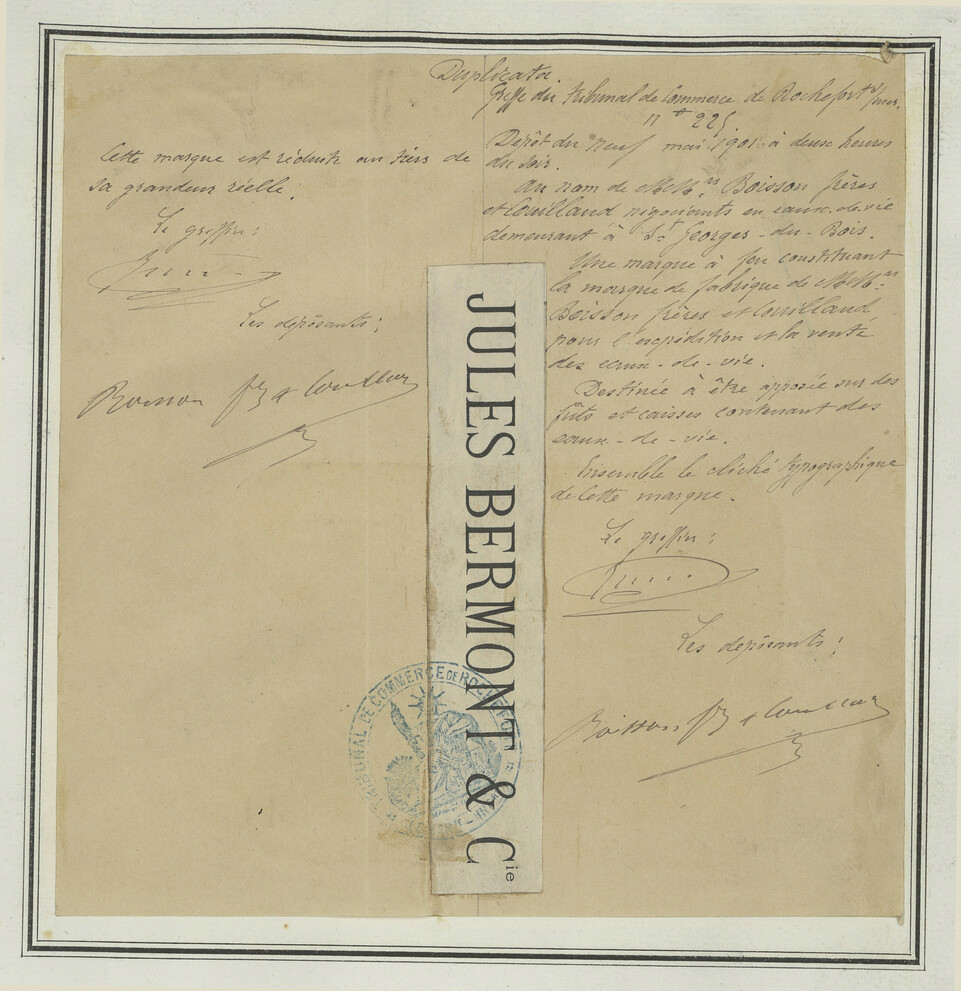 Duplicata.
Greffe du tribunal de Commerce de Rochefort s/mer.
n° 225
Dépôt du neuf mai 1901 à deux heures
du soir.
Au nom de MM.rs Boisson frères
et Couilland négociants en eaux-de-vie
demeurant à St Georges-du-Bois.
Une marque à feu constituant
la marque de fabrique de MM.rs
Boisson frères et Couilland,
pour l'expédition et la vente
des eaux-de-vie.
Destinée à être apposée sur des
fûts et caisses contenant des
eaux-de-vie.
Ensemble le cliché typographique
de cette marque.
Le greffier:
Les déposants:
Boisson frs & Couilland
Cette marque est réduite au tiers de
sa grandeur réelle.
Le greffier:
Les déposants:
Boisson frs & Couilland
JULES BERMONT & Cie
TRIBUNAL DE COMMERCE DE ROCHEFORT